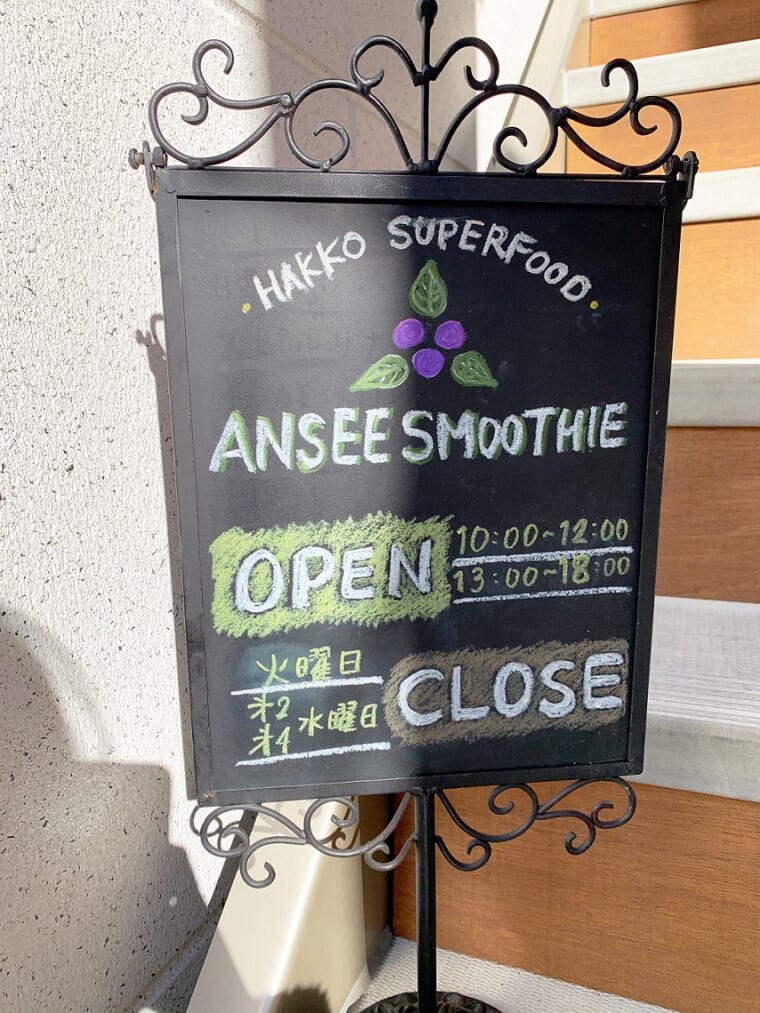 HAKKO SUPERFOOD
ANSEE SMOOTHIE
OPEN
10:00~12:00
13:00~18:00
火曜日
㐧2
㐧4
水曜日
CLOSE